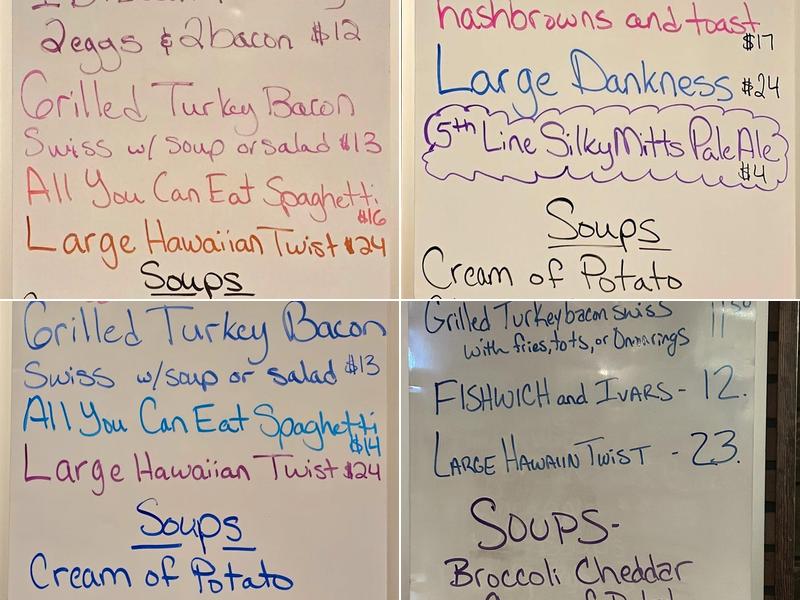 2eggs & 2bacon $12
Grilled Turkey Bacon
Swiss w/ soup or salad $13
All You Can Eat Spaghetti
$16
Large Hawaiian Twist $24
Soups
hashbrowns and toast
$17
Large Dankness $24
5th Line Silky Mitts Pale Ale
$4
Soups
Cream of Potato
Grilled Turkey Bacon
Swiss w/soup or salad $13
All You Can Eat Spaghetti
$14
Large Hawaiian Twist $24
Soups
Cream of Potato
Grilled Turkey bacon swiss
with fries, tots, or
FISHWICH and IVARS - 12.
LARGE HAWAIIN TWIST - 23.
SOUPS-
Broccoli Cheddar